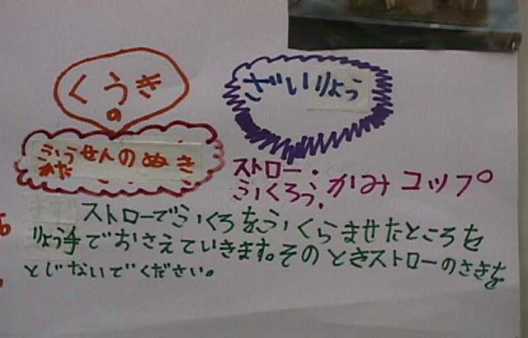 くうき
の
ふうせんのぬき
かた
ざいりょう
ストロー・
ふくろう、かみコップ
ストローでふくろをふくらませたところを
りょう手でおさえていきます。そのときストローのさきを
とじないでください。